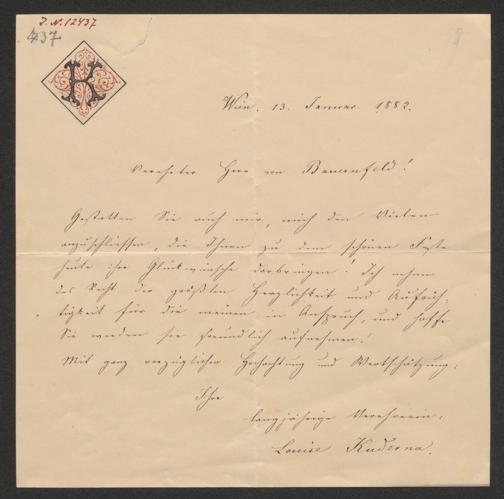 J.N. 12437
437
K
Wien. 13. Januar. 1882.
Verehrter Herr von Bauernfeld!
Gestatten Sie auch mir, mich den Vielen
anzuschließen, die Ihnen zu dem schönen Feste
heute ihre Glückwünsche darbringen! Ich nehme
das Recht der größten Herzlichkeit und Aufrich-
tigkeit für die meinen in Anspruch, und hoffe
Sie werden sie freundlich aufnehmen!
Mit ganz vorzüglicher Hochachtung und Wertschätzung.
Ihre
langjährige Verehrerin.
Louise Kuderna.